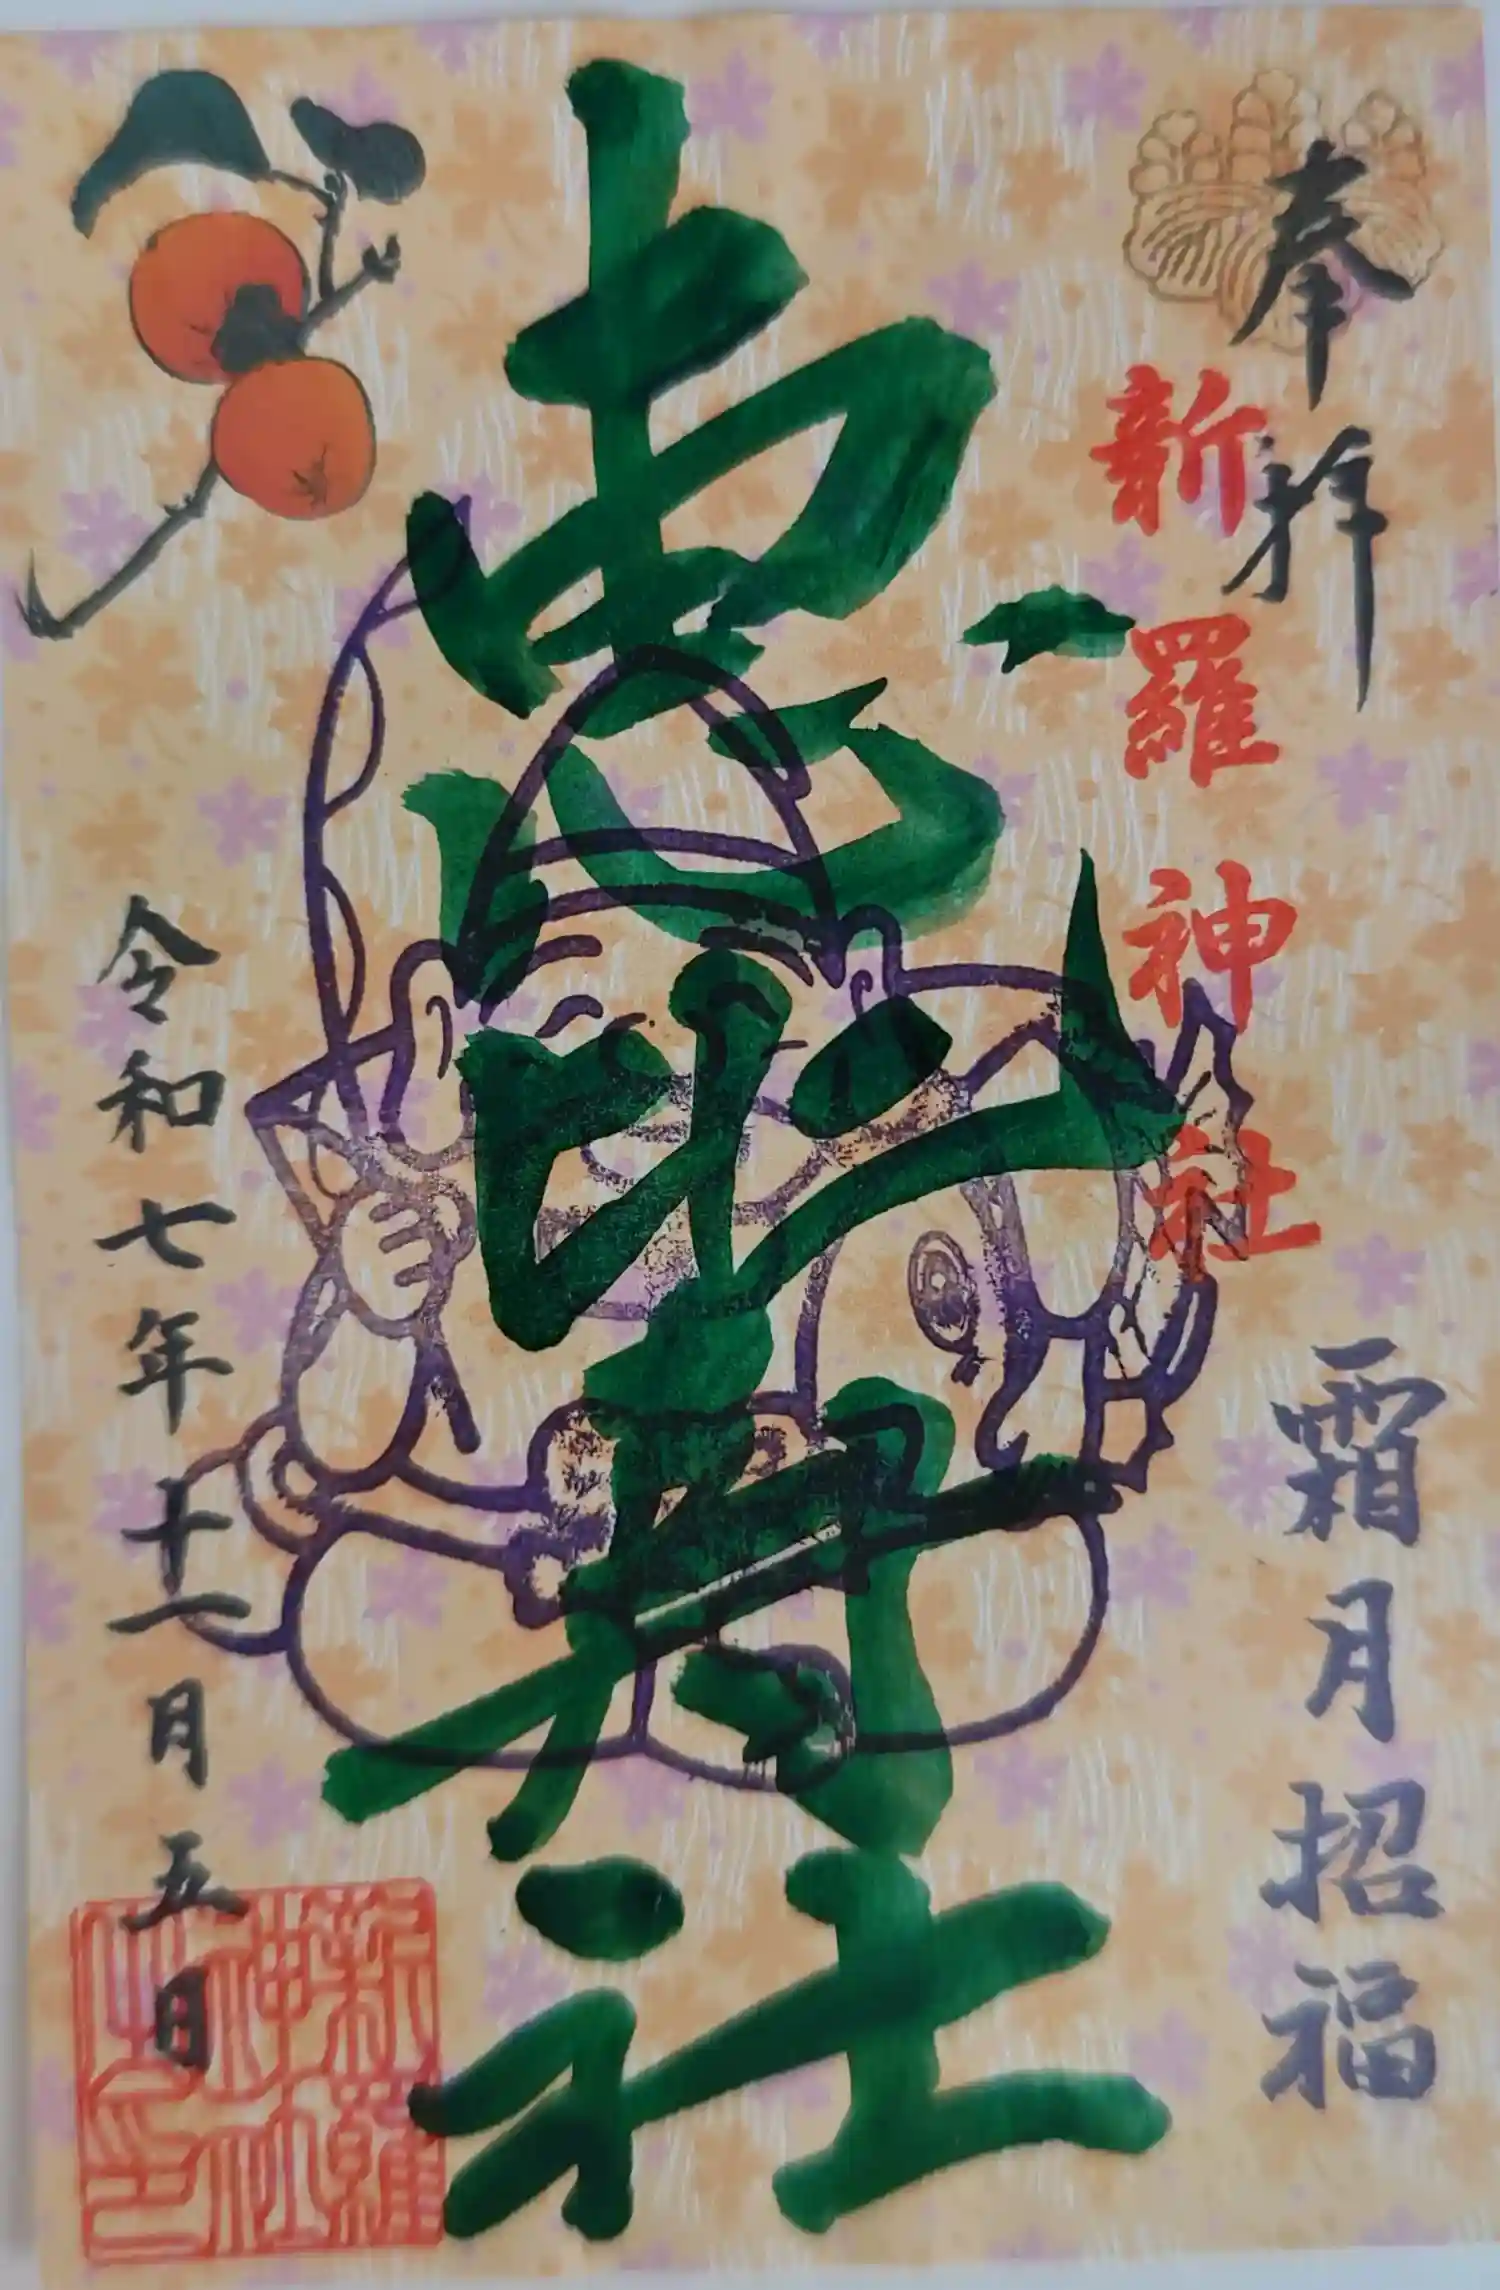 奉拝
新羅神社
霜月招福
恵比寿社
令和七年十一月五日
新羅
神社
之印